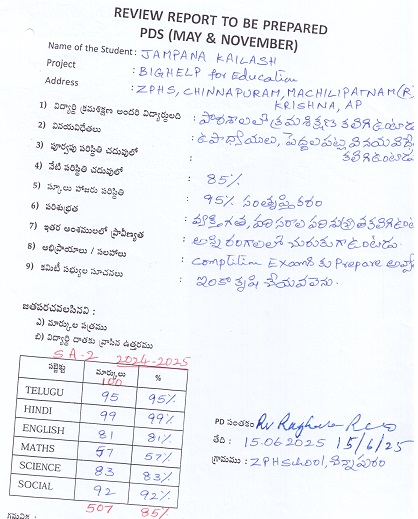 REVIEW REPORT TO BE PREPARED
PDS (MAY & NOVEMBER)
Name of the Student : JAMPANA KAILASH
Project : BIGHELP for Education
Address : ZPHS, CHINNAPURAM, MACHILIPATNAM(R)
KRISHNA, AP
1) విద్యార్థి క్రమశిక్షణ అందరి విద్యార్థులది : పాఠశాలలో క్రమశిక్షణ కలిగి ఉంటాడు
2) వినయవిధేతలు : ఉపాధ్యాయులు, పెద్దలపట్ల వినయ
కలిగిఉంటాడు
3) పూర్వపు పరిస్థితి చదువులో :
4) నేటి పరిస్థితి చదువులో : 85%
5) స్కూలు హాజరు పరిస్థితి : 95% సంతృప్తికరం
6) పరిశుభ్రత : వ్యక్తిగత, పరిసరాల పరిశుభ్రత కలిగిఉంటా
7) ఇతర అంశములలో ప్రావీణ్యత : అన్ని రంగాలలో చురుకుగా ఉంటాడు.
8) అభిప్రాయాలు / సలహాలు : Comptition Exams కు Prepare
9) కమిటీ సభ్యుల సూచనలు : ఇంకా కృషి చేయవలెను.
జతపరచవలసినవి :
ఎ) మార్కుల పత్రము
బి) విద్యార్థి దాతకు వ్రాసిన ఉత్తరము
SA-2 2024-2025
సబ్జెక్టు మార్కులు %
100
TELUGU 95 95%
HINDI 99 99%
ENGLISH 81 81%
MATHS 57 57%
SCIENCE 83 83%
SOCIAL 92 92%
507 85%
PD సంతకం : Rv Raghava Rao
తేది : 15.06.2025 15/6/25
గ్రామము : ZPHSchool, చిన్నాపురం
గమనిక :